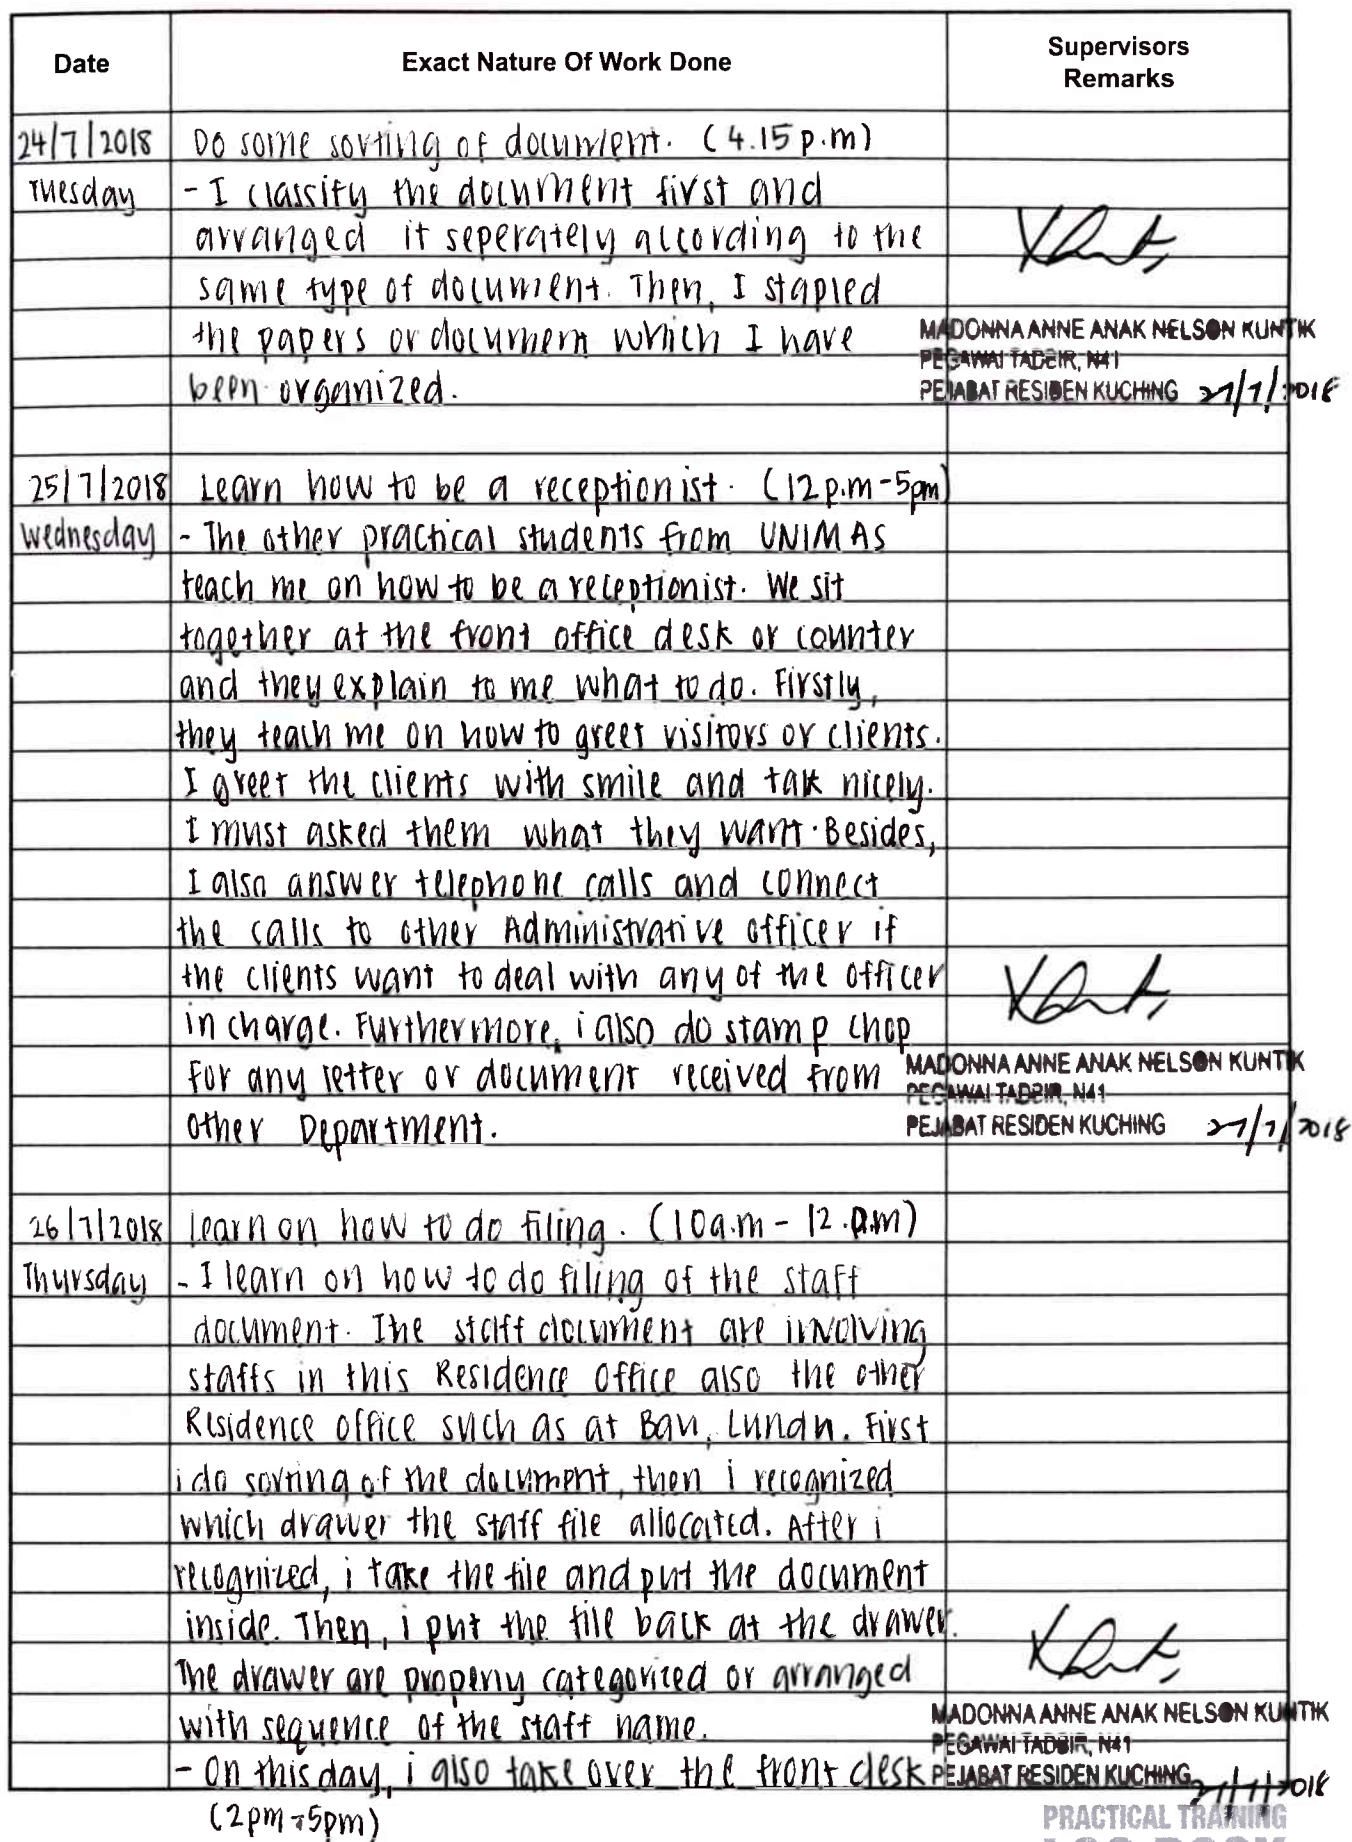 Date Exact Nature Of Work Done Supervisors Remarks
24/7/2018 Do some sorting of document. (4.15 p.m)
Tuesday - I classify the document first and
arranged it seperately according to the
same type of document. Then, I stapled
the papers or document which I have
been organized.
MADONNA ANNE ANAK NELSON KUNTIK
PEGAWAI TADBIR, N41
PEJABAT RESIDEN KUCHING 27/7/2018
25/7/2018 Learn how to be a receptionist. (12p.m-5pm)
Wednesday - The other practical students from UNIMAS
teach me on how to be a receptionist. We sit
together at the front office desk or counter
and they explain to me what to do. Firstly,
they teach me on how to greet visitors or clients.
I greet the clients with smile and talk nicely.
I must asked them what they want. Besides,
I also answer telephone calls and connect
the calls to other Administrative officer if
the clients want to deal with any of the officer
in charge. Furthermore, i also do stamp chop
for any letter or document received from
other Department.
MADONNA ANNE ANAK NELSON KUNTIK
PEGAWAI TADBIR, N41
PEJABAT RESIDEN KUCHING 27/7/2018
26/7/2018 Learn on how to do filing. (10a.m - 12.p.m)
Thursday - I learn on how to do filing of the staff
document. The staff document are involving
staffs in this Residence Office also the other
Residence office such as at Bau, Lundu. First
i do sorting of the document, then i recognized
which drawer the staff file allocated. After i
recognized, i take the file and put the document
inside. Then, i put the file back at the drawer.
The drawer are properly categorized or arranged
with sequence of the staff name.
- On this day, i also take over the front desk
(2pm-5pm)
MADONNA ANNE ANAK NELSON KUNTIK
PEGAWAI TADBIR, N41
PEJABAT RESIDEN KUCHING 27/7/2018
PRACTICAL TRAINING
LOG BOOK